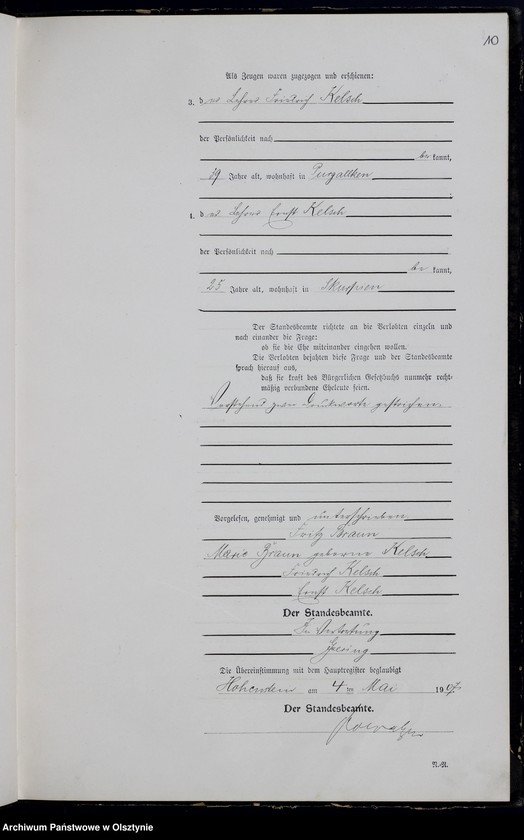 10
Als Zeugen waren zugezogen und erschienen:
3. der Lehrer Friedrich Kelsch
der Persönlichkeit nach
be kannt,
59 Jahre alt, wohnhaft in Purgallken
4. der Lehrer Ernst Kelsch
der Persönlichkeit nach
be kannt,
25 Jahre alt, wohnhaft in
Der Standesbeamte richtete an die Verlobten einzeln und
nach einander die Frage:
ob sie die Ehe miteinander eingehen wollen.
Die Verlobten bejahten diese Frage und der Standesbeamte
sprach hierauf aus,
daß sie kraft des Bürgerlichen Gesetzbuchs nunmehr recht-
mäßig verbundene Eheleute seien.
Vorstehend zwei Druckworte gestrichen.
Vorgelesen, genehmigt und unterschrieben
Fritz Braun
Marie Braun geborene Kelsch
Friedrich Kelsch
Ernst Kelsch
Der Standesbeamte.
In Vertretung
Die Übereinstimmung mit dem Hauptregister beglaubigt
am 4 ten Mai 1907.
Der Standesbeamte.
N.-R.
Archiwum Państwowe w Olsztynie